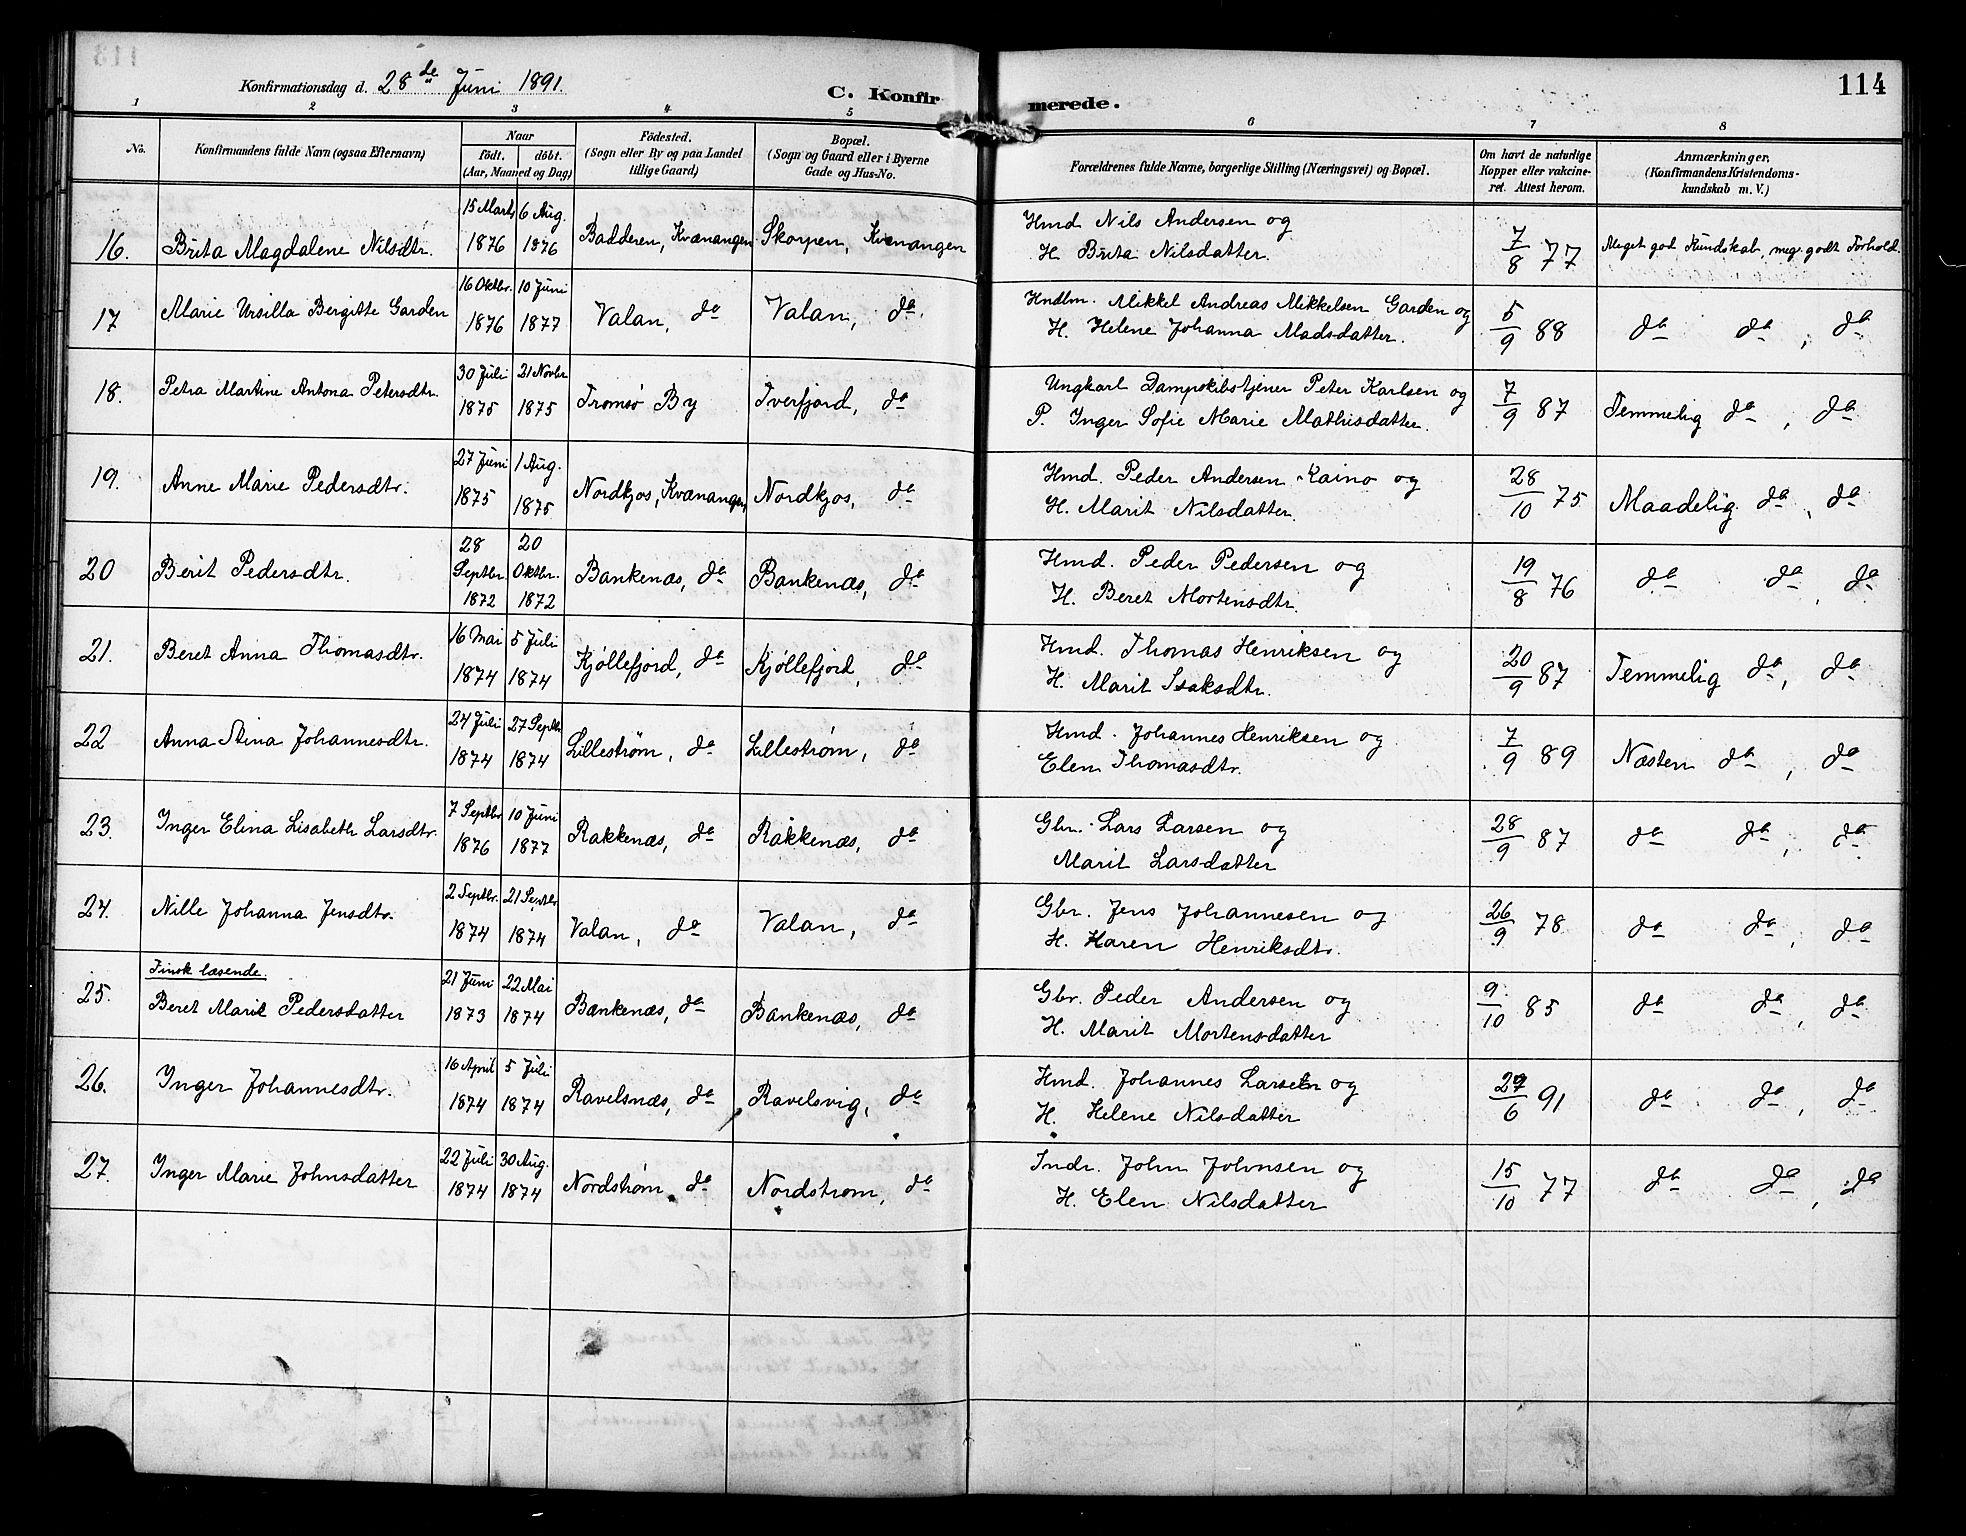 Konfirmationsdag d. 28de Juni 1891.
C. Konfirmerede.
114
1 2 3 4 5 6 7 8
No.
Konfirmandens fulde Navn (ogsaa Efternavn)
Naar
födt. döbt.
(Aar, Maaned og Dag)
Födested.
(Sogn eller By og paa Landet
tillige Gaard)
Bopæl.
(Sogn og Gaard eller i Byerne
Gade og Hus-No.
Forældrenes fulde Navne, borgerlige Stilling (Næringsvei) og Bopæl.
Om havt de naturlige
Kopper eller vakcine-
ret. Attest herom.
Anmærkninger,
(Konfirmandens Kristendoms-
kundskab m. V.)
16. Brita Magdalene Nilsdtr. 15 Marts 1876 6 Aug. 1876 Badderen, Kvænangen Skorpen, Kvænangen Hmd Nils Andersen og
H. Brita Nilsdatter. 7/8 77 Meget god Kundskab, meg. godt Forhold.
17 Marie Ursilla Bergitte Garden 16 Oktbr. 1876 10 Juni 1877 Valan, do Valan, do. Hndlm. Mikkel Andreas Mikkelsen Garden og
H. Helene Johanna Madsdatter. 5/9 88 do do, do
18. Petra Martine Antona Petersdtr. 30 Juli 1875 21 Novbr 1875 Tromsø By Tverfjord, do Ungkarl Dampskibstjener Peter Karlsen og
P. Inger Sofie Marie Mathisdatter. 7/9 87 Temmelig do, do
19. Anne Marie Pedersdtr. 27 Juni 1875 1 Aug. 1875 Nordkjos, Kvænangen Nordkjos, do Hmd. Peder Andersen Kaino og
H. Marit Nilsdatter. 28/10 75 Maadelig do, do
20 Berit Pedersdtr. 28 Septbr. 1872 20 Oktbr. 1872 Bankenæs, do Bankenæs, do Hmd. Peder Pedersen og
H. Beret Mortensdtr. 19/8 76 do do, do
21. Beret Anna Thomasdtr. 16 Mai 1874 5 Juli 1874 Kjøllefjord, do Kjøllefjord, do Hmd. Thomas Henriksen og
H. Marit Isaksdtr. 20/9 87 Temmelig do, do
22 Anna Stina Johannesdtr. 24 Juli 1874 27 Septbr 1874 Lillestrøm, do Lillestrøm, do Hmd. Johannes Henriksen og
Elen Thomasdtr. 7/9 89 Næsten do, do
23. Inger Elina Lisabeth Larsdtr. 7 Septbr 1876 10 Juni 1877 Rakkenæs, do Rakkenæs, do Gbr. Lars Larsen og
Marit Larsdatter 28/9 87 do do, do
24. Nille Johanna Jensdtr. 2 Septbr. 1874 21 Septbr 1874 Valan, do Valan, do Gbr. Jens Johannesen og
H. Karen Henriksdtr. 26/9 78 do do, do
Finsk læsende.
25. Beret Marit Pedersdatter 21 Juni 1873 22 Mai 1874 Bankenæs, do Bankenæs, do Gbr. Peder Andersen og
H. Marit Mortensdatter 9/10 85 do do, do
26. Inger Johannesdtr. 16 April 1874 5 Juli 1874 Ravelsnæs, do Ravelsvig, do Hmd. Johannes Larsen og
H. Helene Nilsdatter 27/6 91 do do, do
27. Inger Marie Johnsdatter 22 Juli 1874 30 Aug. 1874 Nordstrøm, do Nordstrøm, do Indr. John Johnsen og
H. Elen Nilsdatter 15/10 77 do do, do